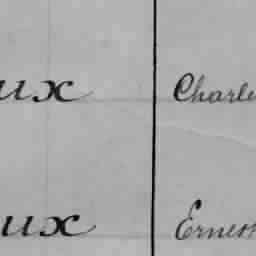 ux Charle
ux Ernes